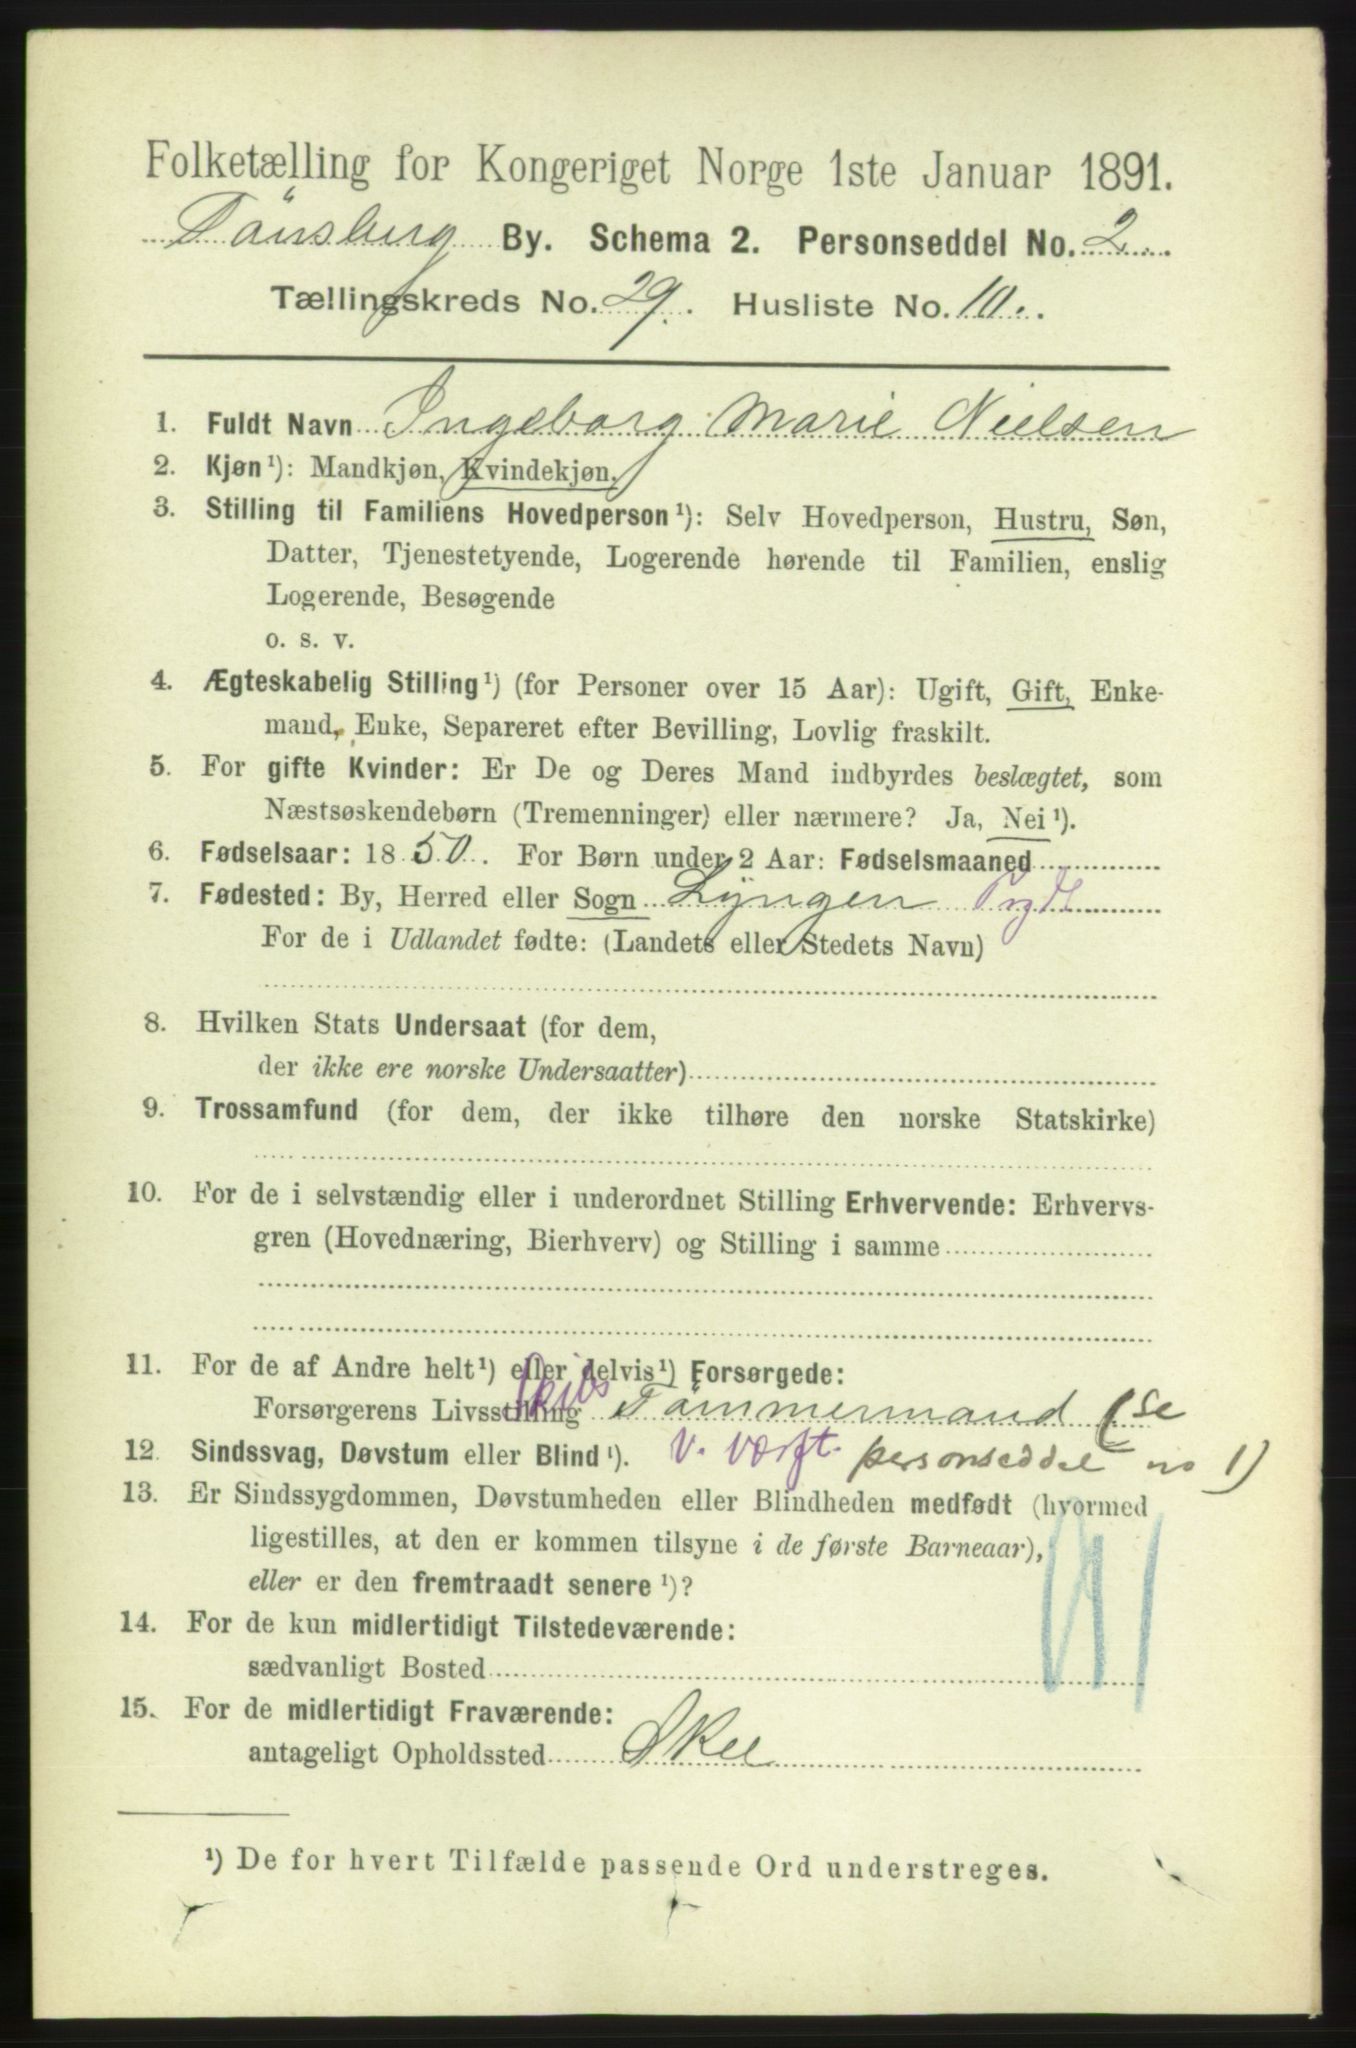 Folketælling for Kongeriget Norge 1ste Januar 1891.
Tönsberg By. Schema 2. Personseddel No. 2
Tællingskreds No. 29. Husliste No. 10.
1. Fuldt Navn Ingeborg Marie Nielsen
2. Kjøn¹): Mandkjøn, Kvindekjøn.
3. Stilling til Familiens Hovedperson¹): Selv Hovedperson, Hustru, Søn,
Datter, Tjenestetyende, Logerende hørende til Familien, enslig
Logerende, Besøgende
o. s. v.
4. Ægteskabelig Stilling¹) (for Personer over 15 Aar): Ugift, Gift, Enke-
mand, Enke, Separeret efter Bevilling, Lovlig fraskilt.
5. For gifte Kvinder: Er De og Deres Mand indbyrdes beslægtet, som
Næstsøskendebørn (Tremenninger) eller nærmere? Ja, Nei¹).
6. Fødselsaar: 1850. For Børn under 2 Aar: Fødselsmaaned
7. Fødested: By, Herred eller Sogn Lyngen
For de i Udlandet fødte: (Landets eller Stedets Navn)
8. Hvilken Stats Undersaat (for dem,
der ikke ere norske Undersaatter)
9. Trossamfund (for dem, der ikke tilhøre den norske Statskirke)
10. For de i selvstændig eller i underordnet Stilling Erhvervende: Erhvervs-
gren (Hovednæring, Bierhverv) og Stilling i samme
11. For de af Andre helt¹) eller delvis¹) Forsørgede:
Forsørgerens Livsstilling Skibs Tömmermand (se
12. Sindssvag, Døvstum eller Blind¹). v. værft. personseddel no 1)
13. Er Sindssygdommen, Døvstumheden eller Blindheden medfødt (hvormed
ligestilles, at den er kommen tilsyne i de første Barneaar),
eller er den fremtraadt senere¹)?
14. For de kun midlertidigt Tilstedeværende:
sædvanligt Bosted
15. For de midlertidigt Fraværende:
antageligt Opholdssted Skee
¹) De for hvert Tilfælde passende Ord understreges.